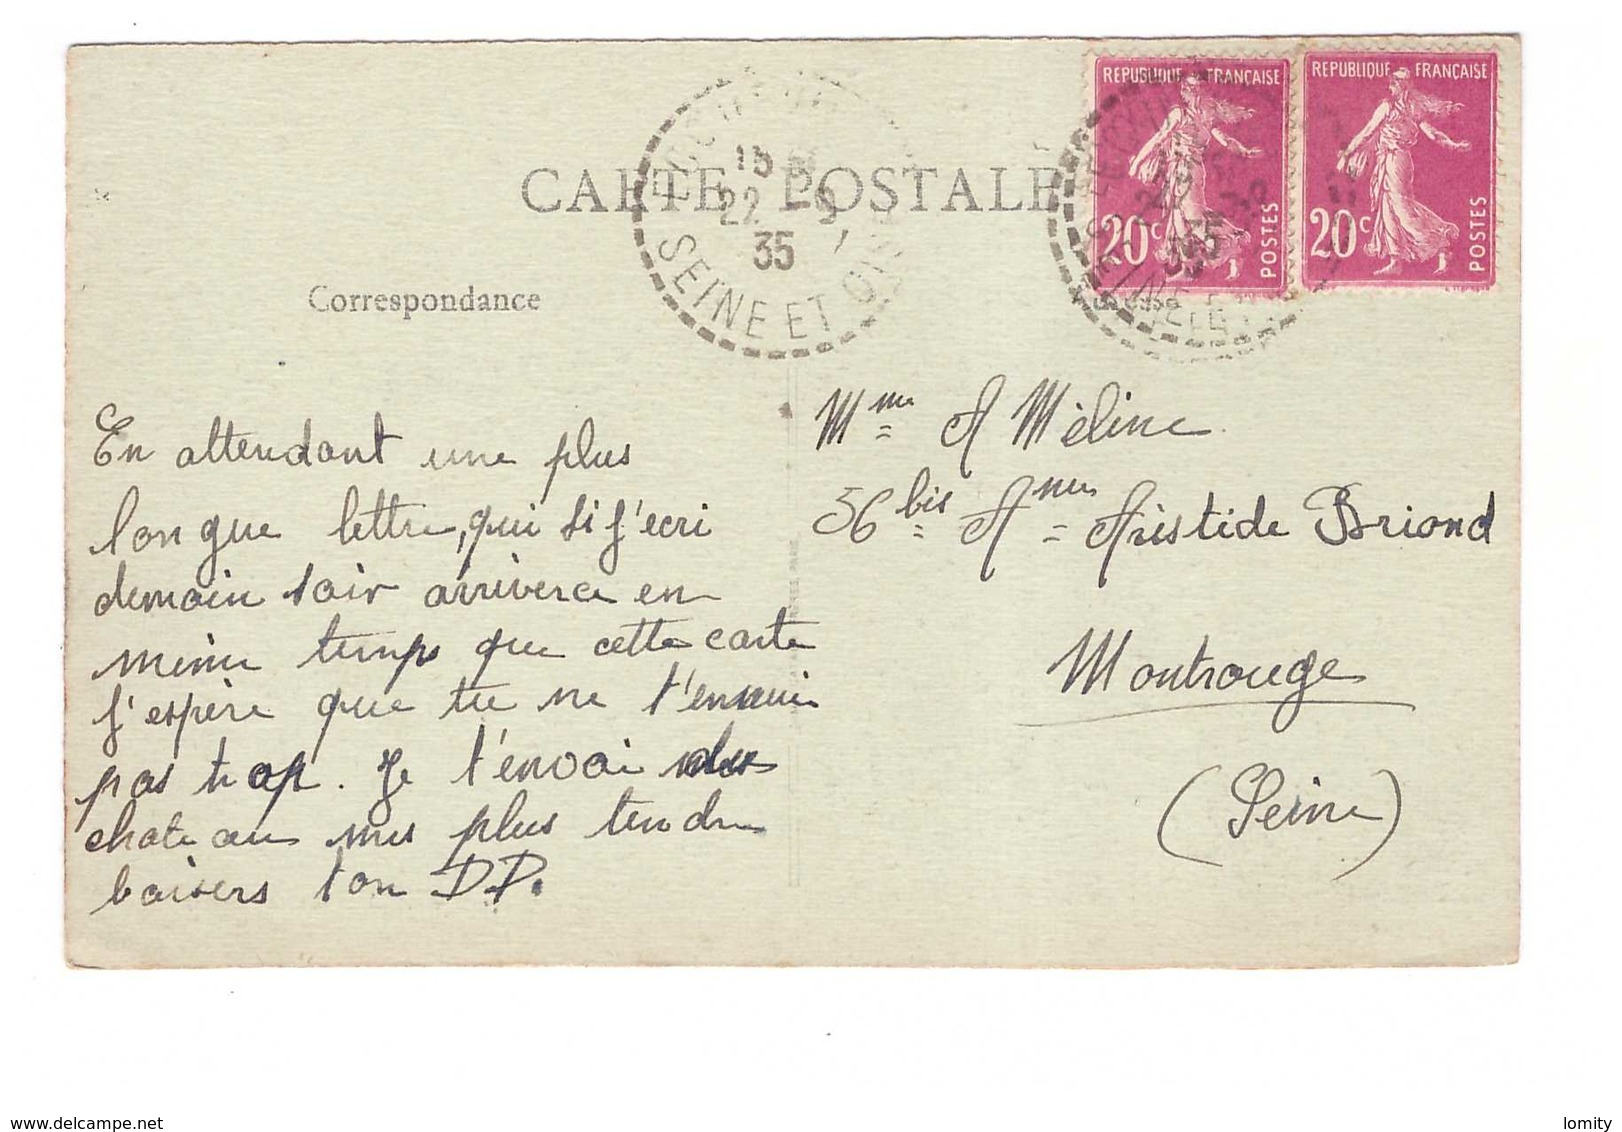 CARTE POSTALE
Correspondance
REPUBLIQUE FRANÇAISE
20c
POSTES
REPUBLIQUE FRANÇAISE
20c
POSTES
15
22 -9
35
SEINE ET OISE
35
En attendant une plus
longue lettre, qui si j'ecri
demain soir arrivera en
même temps que cette carte
j'espère que tu ne t'ennui
pas trop. Je t'envoi du
chateau mes plus tendre
baisers ton DD.
Mme A Mèline
36 bis Anue Aristide Briand
Montrouge
(Seine)
delcampe.net
lomity